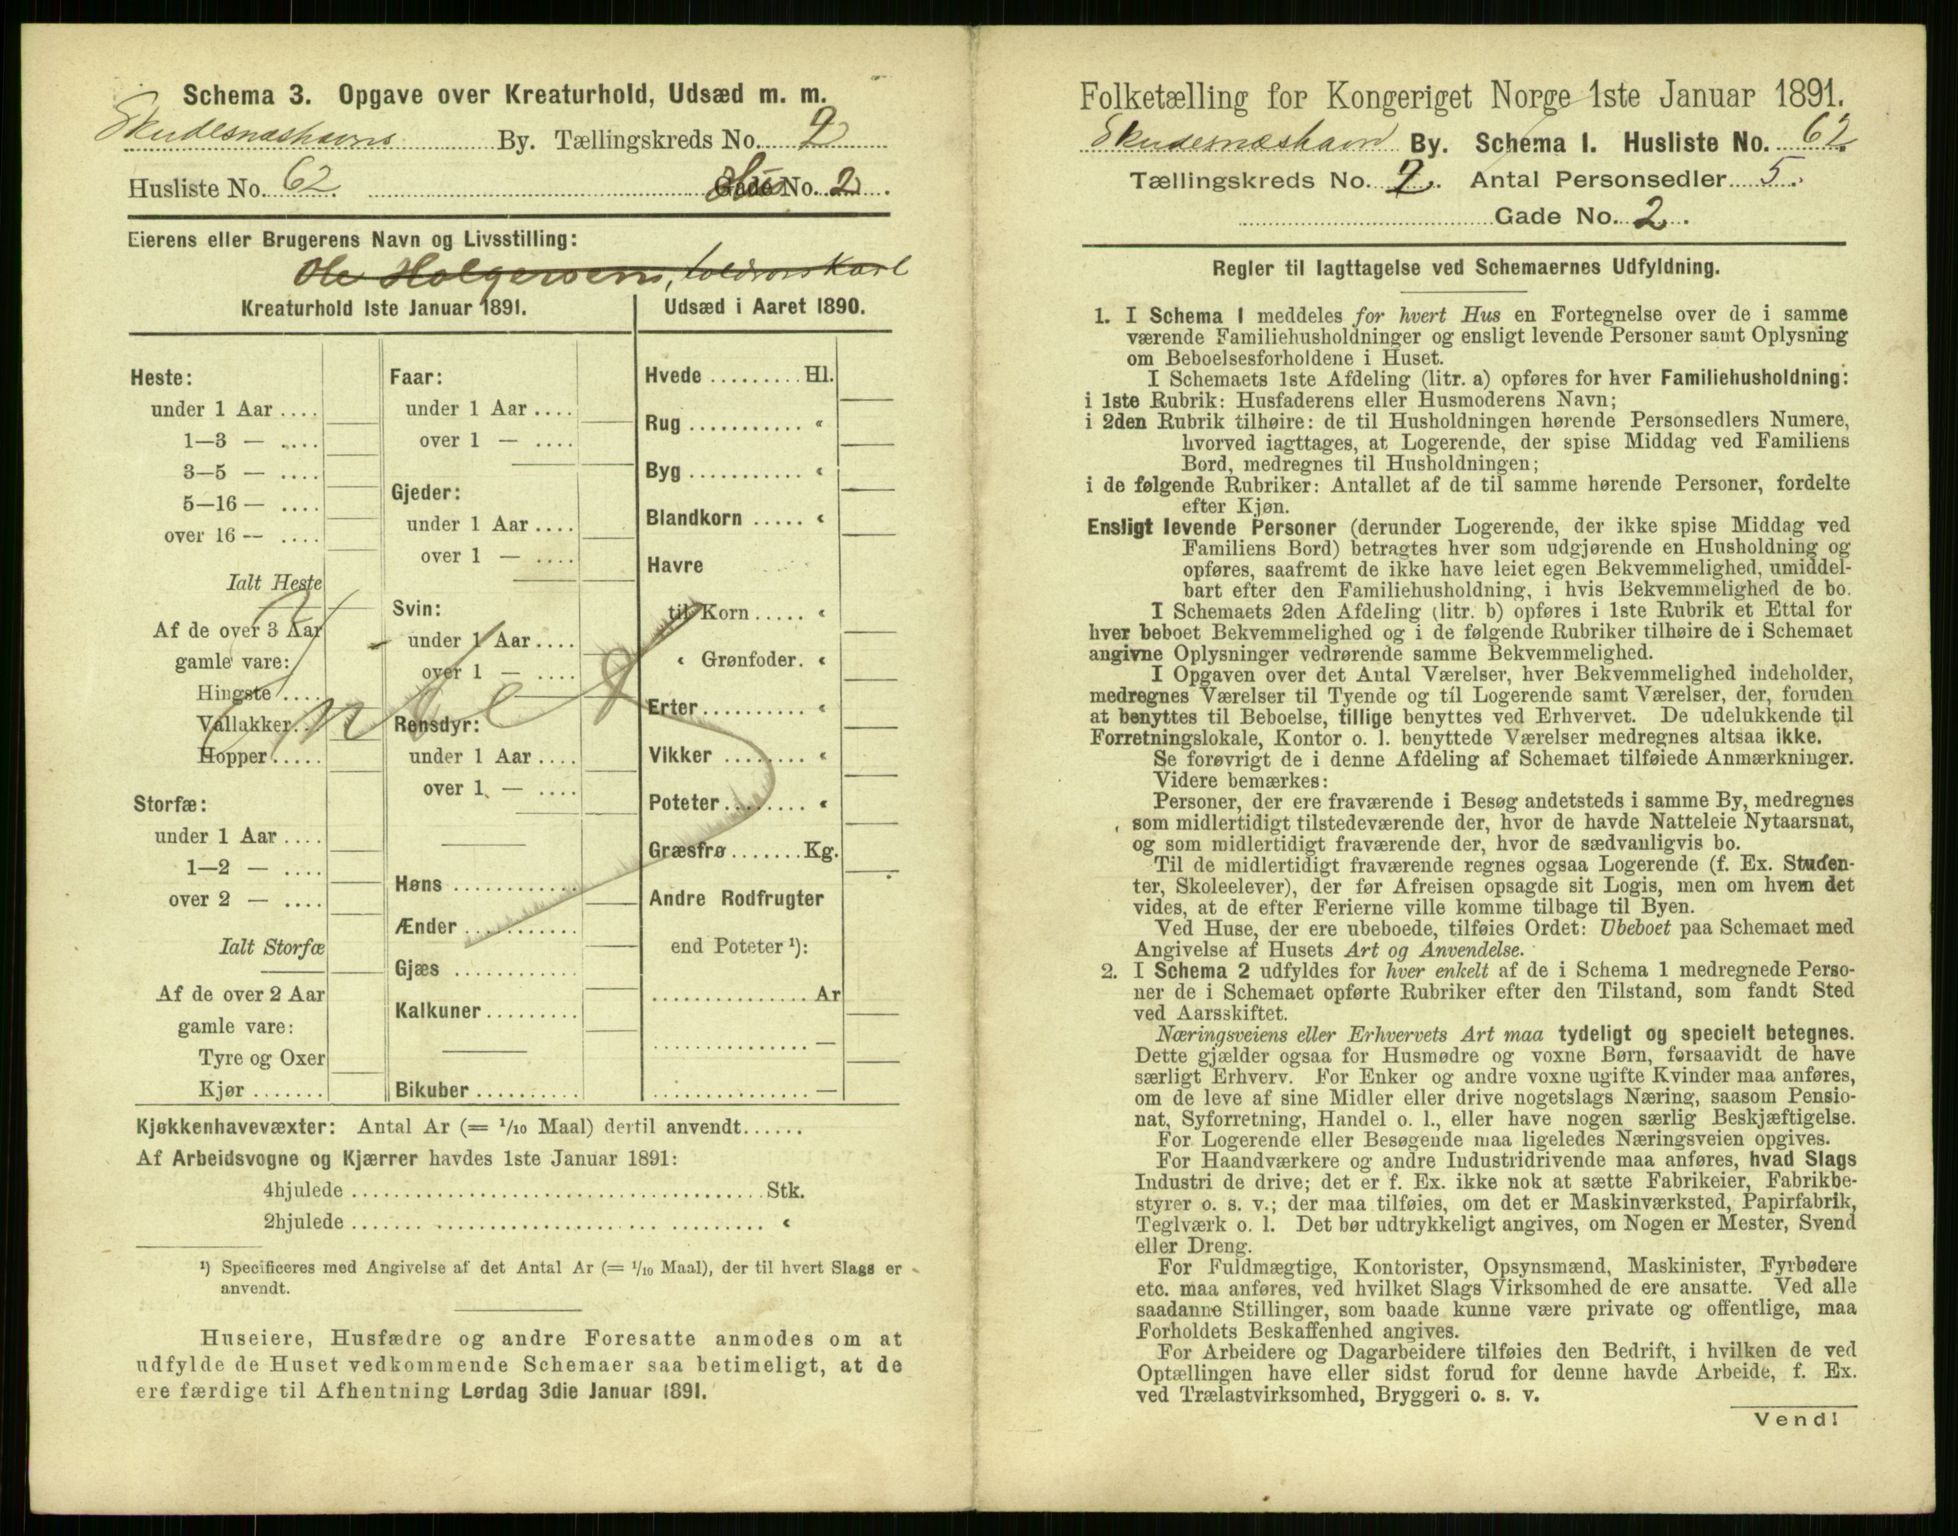 Schema 3. Opgave over Kreaturhold, Udsæd m. m.
Skudesnæshavns By. Tællingskreds No. 2
Husliste No. 62 Hus No. 2.
Eierens eller Brugerens Navn og Livsstilling:
Ole Holgersen, toldrorskarl
Kreaturhold 1ste Januar 1891.
Heste:
under 1 Aar ....
1—3 — ....
3—5 — ....
5—16 — ....
over 16 — ....
Ialt Heste
Af de over 3 Aar
gamle vare:
Hingste ....
Vallakker...
Hopper .....
Storfæ:
under 1 Aar ....
1—2 — ....
over 2 — ....
Ialt Storfæ
Af de over 2 Aar
gamle vare:
Tyre og Oxer
Kjør .......
Faar:
under 1 Aar ....
over 1 — ....
Gjeder:
under 1 Aar ....
over 1 — ....
Svin:
under 1 Aar ....
over 1 — ....
Rensdyr:
under 1 Aar ....
over 1 — ....
Høns ...........
Ænder ..........
Gjæs ...........
Kalkuner ........
Bikuber .........
Udsæd i Aaret 1890.
Hvede ......... Hl.
Rug ........... «
Byg ........... «
Blandkorn ..... «
Havre
til Korn ..... «
« Grønfoder. «
Erter .......... «
Vikker ........ «
Poteter ........ «
Græsfrø ....... Kg.
Andre Rodfrugter
end Poteter ¹):
............... Ar
............... —
............... —
Kjøkkenhavevæxter: Antal Ar (= 1/10 Maal) dertil anvendt......
Af Arbeidsvogne og Kjærrer havdes 1ste Januar 1891:
4hjulede ........................................ Stk.
2hjulede ........................................ «
¹) Specificeres med Angivelse af det Antal Ar (= 1/10 Maal), der til hvert Slags er
anvendt.
Huseiere, Husfædre og andre Foresatte anmodes om at
udfylde de Huset vedkommende Schemaer saa betimeligt, at de
ere færdige til Afhentning Lørdag 3die Januar 1891.
Folketælling for Kongeriget Norge 1ste Januar 1891.
Skudesnæshavn By. Schema 1. Husliste No. 62.
Tællingskreds No. 2. Antal Personsedler 5.
Gade No. 2.
Regler til Iagttagelse ved Schemaernes Udfyldning.
1. I Schema 1 meddeles for hvert Hus en Fortegnelse over de i samme
værende Familiehusholdninger og ensligt levende Personer samt Oplysning
om Beboelsesforholdene i Huset.
I Schemaets 1ste Afdeling (litr. a) opføres for hver Familiehusholdning:
i 1ste Rubrik: Husfaderens eller Husmoderens Navn;
i 2den Rubrik tilhøire: de til Husholdningen hørende Personsedlers Numere,
hvorved iagttages, at Logerende, der spise Middag ved Familiens
Bord, medregnes til Husholdningen;
i de følgende Rubriker: Antallet af de til samme hørende Personer, fordelte
efter Kjøn.
Ensligt levende Personer (derunder Logerende, der ikke spise Middag ved
Familiens Bord) betragtes hver som udgjørende en Husholdning og
opføres, saafremt de ikke have leiet egen Bekvemmelighed, umiddel-
bart efter den Familiehusholdning, i hvis Bekvemmelighed de bo.
I Schemaets 2den Afdeling (litr. b) opføres i 1ste Rubrik et Ettal for
hver beboet Bekvemmelighed og i de følgende Rubriker tilhøire de i Schemaet
angivne Oplysninger vedrørende samme Bekvemmelighed.
I Opgaven over det Antal Værelser, hver Bekvemmelighed indeholder,
medregnes Værelser til Tyende og til Logerende samt Værelser, der, foruden
at benyttes til Beboelse, tillige benyttes ved Erhvervet. De udelukkende til
Forretningslokale, Kontor o. l. benyttede Værelser medregnes altsaa ikke.
Se forøvrigt de i denne Afdeling af Schemaet tilføiede Anmærkninger.
Videre bemærkes:
Personer, der ere fraværende i Besøg andetsteds i samme By, medregnes
som midlertidigt tilstedeværende der, hvor de havde Natteleie Nytaarsnat,
og som midlertidigt fraværende der, hvor de sædvanligvis bo.
Til de midlertidigt fraværende regnes ogsaa Logerende (f. Ex. Studen-
ter, Skoleelever), der før Afreisen opsagde sit Logis, men om hvem det
vides, at de efter Ferierne ville komme tilbage til Byen.
Ved Huse, der ere ubeboede, tilføies Ordet: Ubeboet paa Schemaet med
Angivelse af Husets Art og Anvendelse.
2. I Schema 2 udfyldes for hver enkelt af de i Schema 1 medregnede Perso-
ner de i Schemaet opførte Rubriker efter den Tilstand, som fandt Sted
ved Aarsskiftet.
Næringsveiens eller Erhvervets Art maa tydeligt og specielt betegnes.
Dette gjælder ogsaa for Husmødre og voxne Børn, forsaavidt de have
særligt Erhverv. For Enker og andre voxne ugifte Kvinder maa anføres,
om de leve af sine Midler eller drive nogetslags Næring, saasom Pensio-
nat, Syforretning, Handel o. l., eller have nogen særlig Beskjæftigelse.
For Logerende eller Besøgende maa ligeledes Næringsveien opgives.
For Haandværkere og andre Industridrivende maa anføres, hvad Slags
Industri de drive; det er f. Ex. ikke nok at sætte Fabrikeier, Fabrikbe-
styrer o. s. v.; der maa tilføies, om det er Maskinværksted, Papirfabrik,
Teglværk o. l. Det bør udtrykkeligt angives, om Nogen er Mester, Svend
eller Dreng.
For Fuldmægtige, Kontorister, Opsynsmænd, Maskinister, Fyrbødere
etc. maa anføres, ved hvilket Slags Virksomhed de ere ansatte. Ved alle
saadanne Stillinger, som baade kunne være private og offentlige, maa
Forholdets Beskaffenhed angives.
For Arbeidere og Dagarbeidere tilføies den Bedrift, i hvilken de ved
Optællingen have eller sidst forud for denne havde Arbeide, f. Ex.
ved Trælastvirksomhed, Bryggeri o. s. v.
Vend!